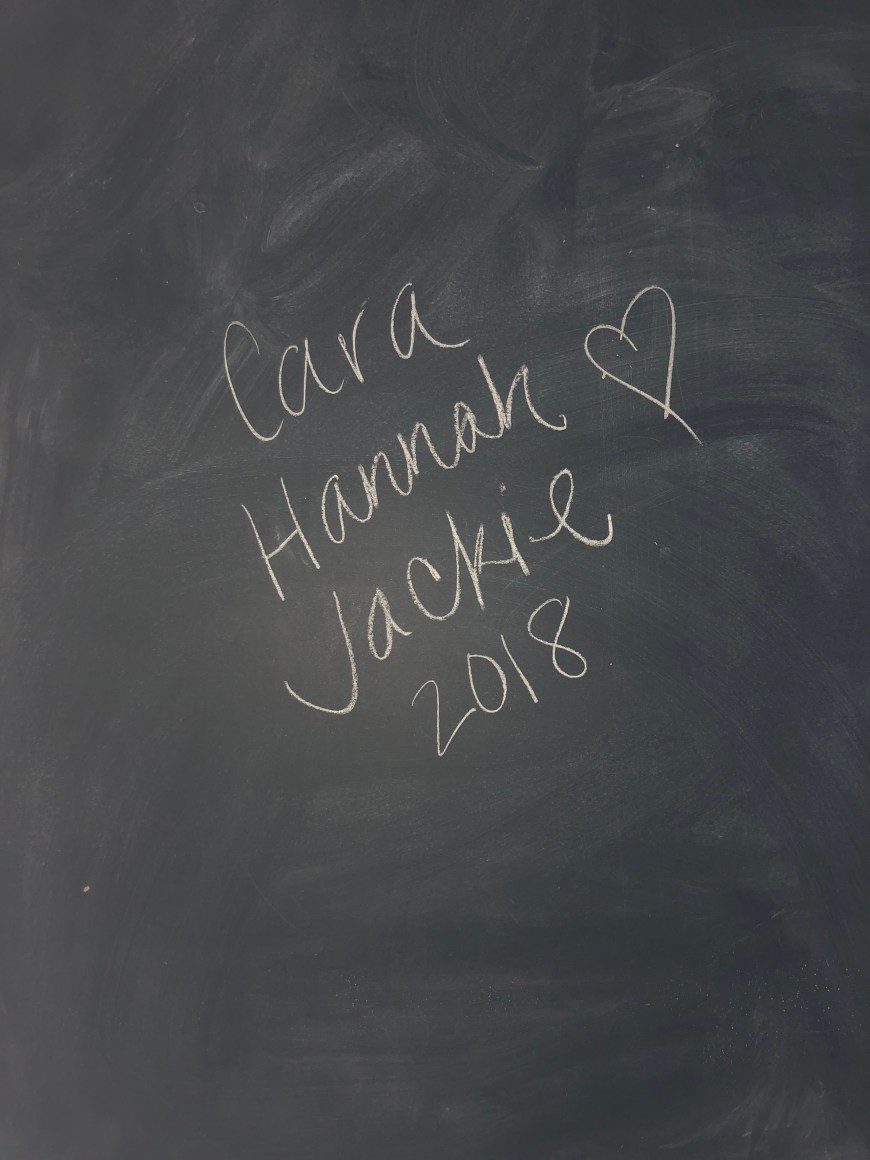 Cara
Hannah ♡
Jackie
2018